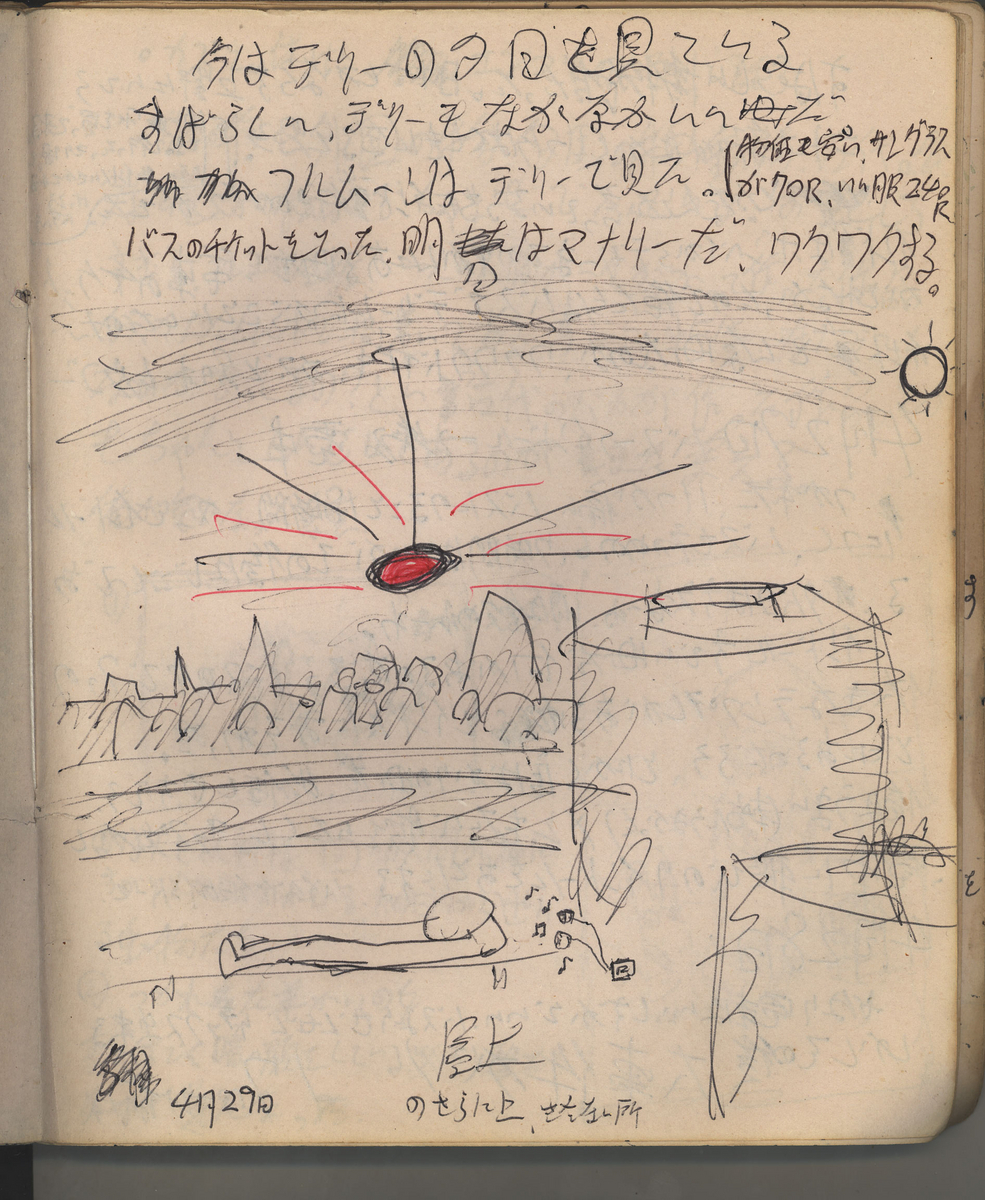 今はデリーの夕日を見ている
すばらしい、デリーもなかなかいい だ
フルムーンはデリーで見た。
(物価も安い、サングラス
が70R、いい服24R
バスのチケットをとった、明 はマナリーだ、ワクワクする。
屋上
4月29日
のさらに上、きたない所